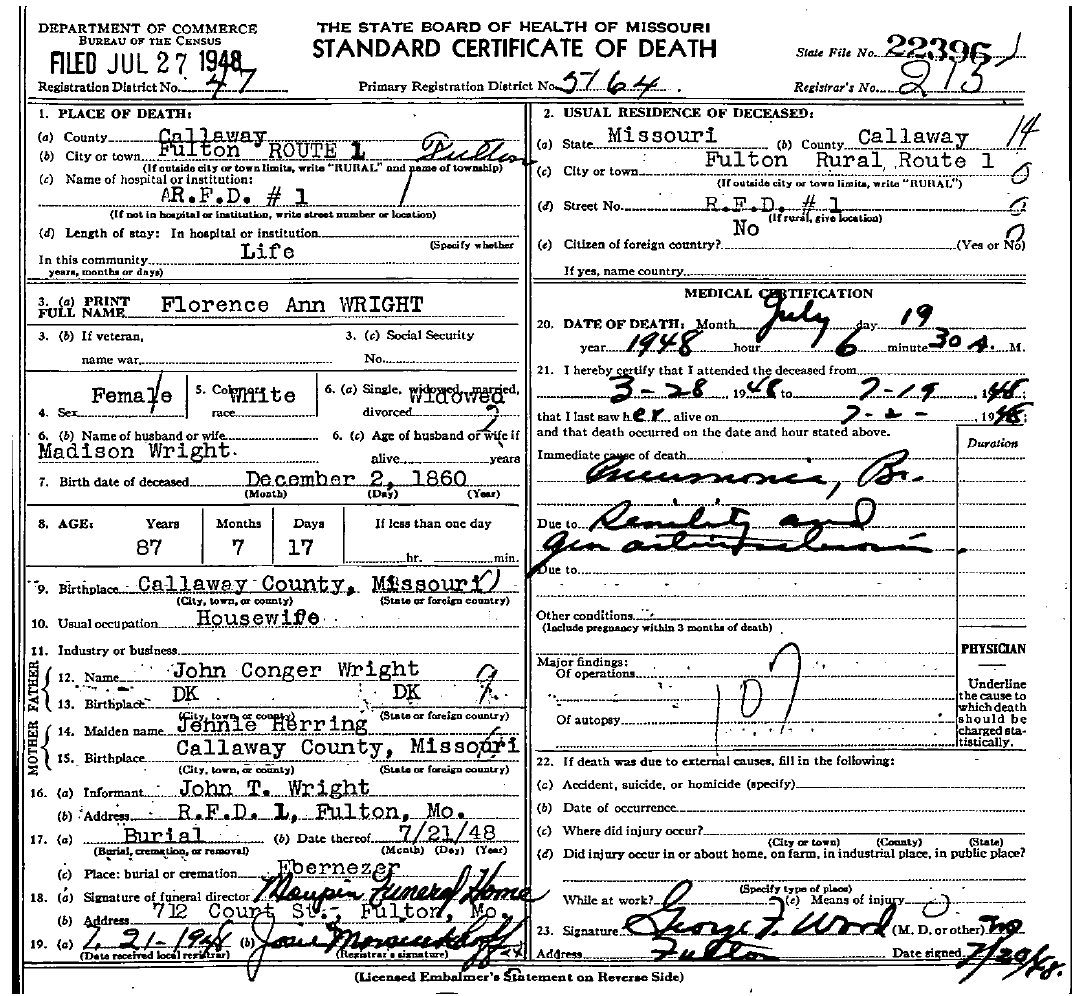 DEPARTMENT OF COMMERCE
BUREAU OF THE CENSUS
FILED JUL 27 1948
Registration District No. 47
THE STATE BOARD OF HEALTH OF MISSOURI
STANDARD CERTIFICATE OF DEATH
Primary Registration District No. 5164
State File No. 22396
Registrar's No. 213
1. PLACE OF DEATH:
(a) County Callaway
(b) City or town Fulton ROUTE 1 Fulton
(If outside city or town limits, write "RURAL" and name of township)
(c) Name of hospital or institution:
R.F.D. # 1
(If not in hospital or institution, write street number or location)
(d) Length of stay: In hospital or institution
(Specify whether
In this community Life
years, months or days)
3. (a) PRINT FULL NAME Florence Ann WRIGHT
3. (b) If veteran,
name war
3. (c) Social Security
No.
4. Sex Female
5. Color or race White
6. (a) Single, widowed, married, divorced Widowed
6. (b) Name of husband or wife
Madison Wright
6. (c) Age of husband or wife if
alive years
7. Birth date of deceased December 2, 1860
(Month) (Day) (Year)
8. AGE: Years Months Days If less than one day
87 7 17 hr. min.
9. Birthplace Callaway County, Missouri
(City, town, or county) (State or foreign country)
10. Usual occupation Housewife
11. Industry or business
FATHER
12. Name John Conger Wright
13. Birthplace DK DK
(City, town or county) (State or foreign country)
MOTHER
14. Maiden name Jennie Herring
15. Birthplace Callaway County, Missouri
(City, town, or county) (State or foreign country)
16. (a) Informant John T. Wright
(b) Address R.F.D. 1, Fulton, Mo.
17. (a) Burial (b) Date thereof 7/21/48
(Burial, cremation, or removal) (Month) (Day) (Year)
(c) Place: burial or cremation Ebernezer
18. (a) Signature of funeral director Maupin Funeral Home
(b) Address 712 Court St., Fulton, Mo.
19. (a) 7-21-1948 (b) Josie
(Date received local registrar) (Registrar's signature)
2. USUAL RESIDENCE OF DECEASED:
(a) State Missouri (b) County Callaway 14
(c) City or town Fulton Rural Route 1 0
(If outside city or town limits, write "RURAL")
(d) Street No. R.F.D. # 1
(If rural, give location)
(e) Citizen of foreign country? No (Yes or No)
If yes, name country
MEDICAL CERTIFICATION
20. DATE OF DEATH: Month July day 19
year 1948 hour 6 minute 30 A. M.
21. I hereby certify that I attended the deceased from
3-28 1948 to 7-19 1948;
that I last saw her alive on 7-2- 1948;
and that death occurred on the date and hour stated above.
Duration
Immediate cause of death
Pneumonia, Br.
Due to Senility and
Gen arteriosclerosis
Due to
Other conditions
(Include pregnancy within 3 months of death)
Major findings:
Of operations
107
Of autopsy
PHYSICIAN
Underline
the cause to
which death
should be
charged sta-
tistically.
22. If death was due to external causes, fill in the following:
(c) Accident, suicide, or homicide (specify)
(b) Date of occurrence
(c) Where did injury occur?
(City or town) (County) (State)
(d) Did injury occur in or about home, on farm, in industrial place, in public place?
(Specify type of place)
While at work? (e) Means of injury
23. Signature George F. Wood (M. D. or other) MD
Address Fulton Date signed 7/20/48.
(Licensed Embalmer's Statement on Reverse Side)